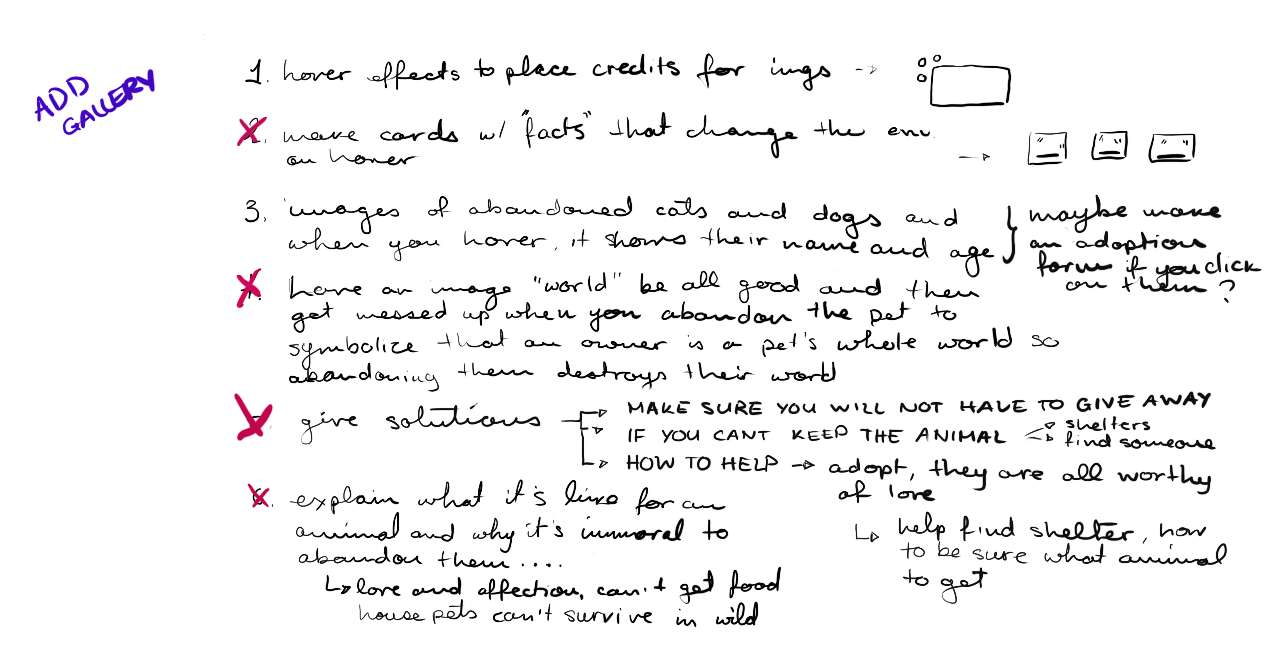 ADD
GALLERY
1. hover effects to place credits for imgs
2. make cards w/ "facts" that change the env.
on hover
3. images of abandoned cats and dogs and
when you hover, it shows their name and age
maybe make
an adoption
form if you click
on them?
4. have an image "world" be all good and then
get messed up when you abandon the pet to
symbolize that an owner is a pet's whole world so
abandoning them destroys their world
give solutions
MAKE SURE YOU WILL NOT HAVE TO GIVE AWAY
IF YOU CANT KEEP THE ANIMAL
shelters
find someone
HOW TO HELP → adopt, they are all worthy
of love
help find shelter, how
to be sure what animal
to get
6. explain what it's like for an
animal and why it's immoral to
abandon them....
love and affection, can't get food
house pets can't survive in wild